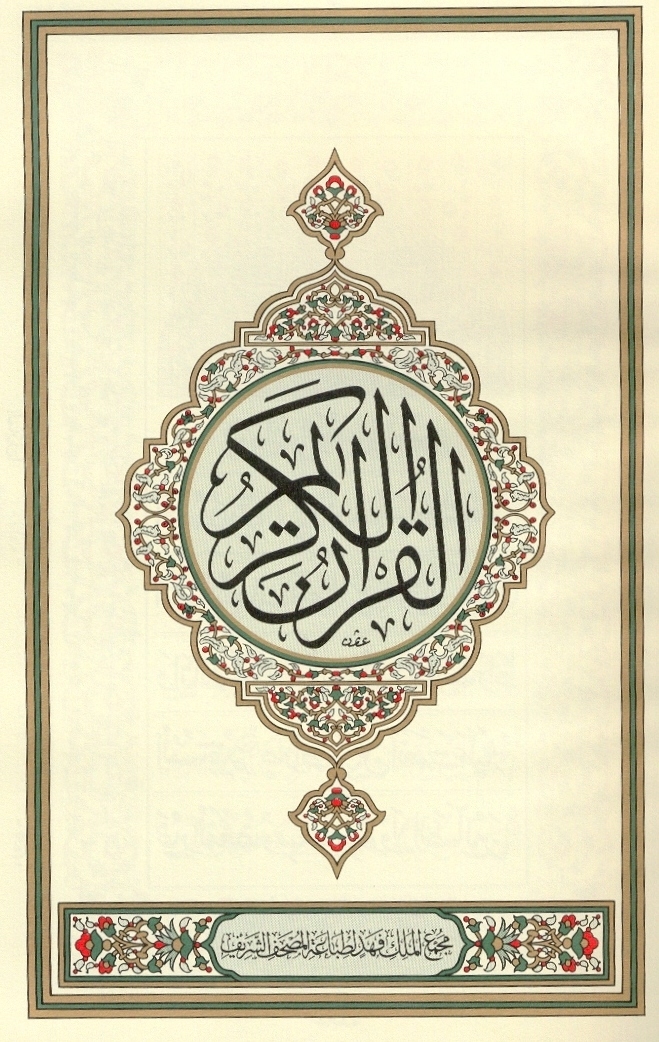 القرآن الكريم
عثمان
مجمع الملك فهد لطباعة المصحف الشريف